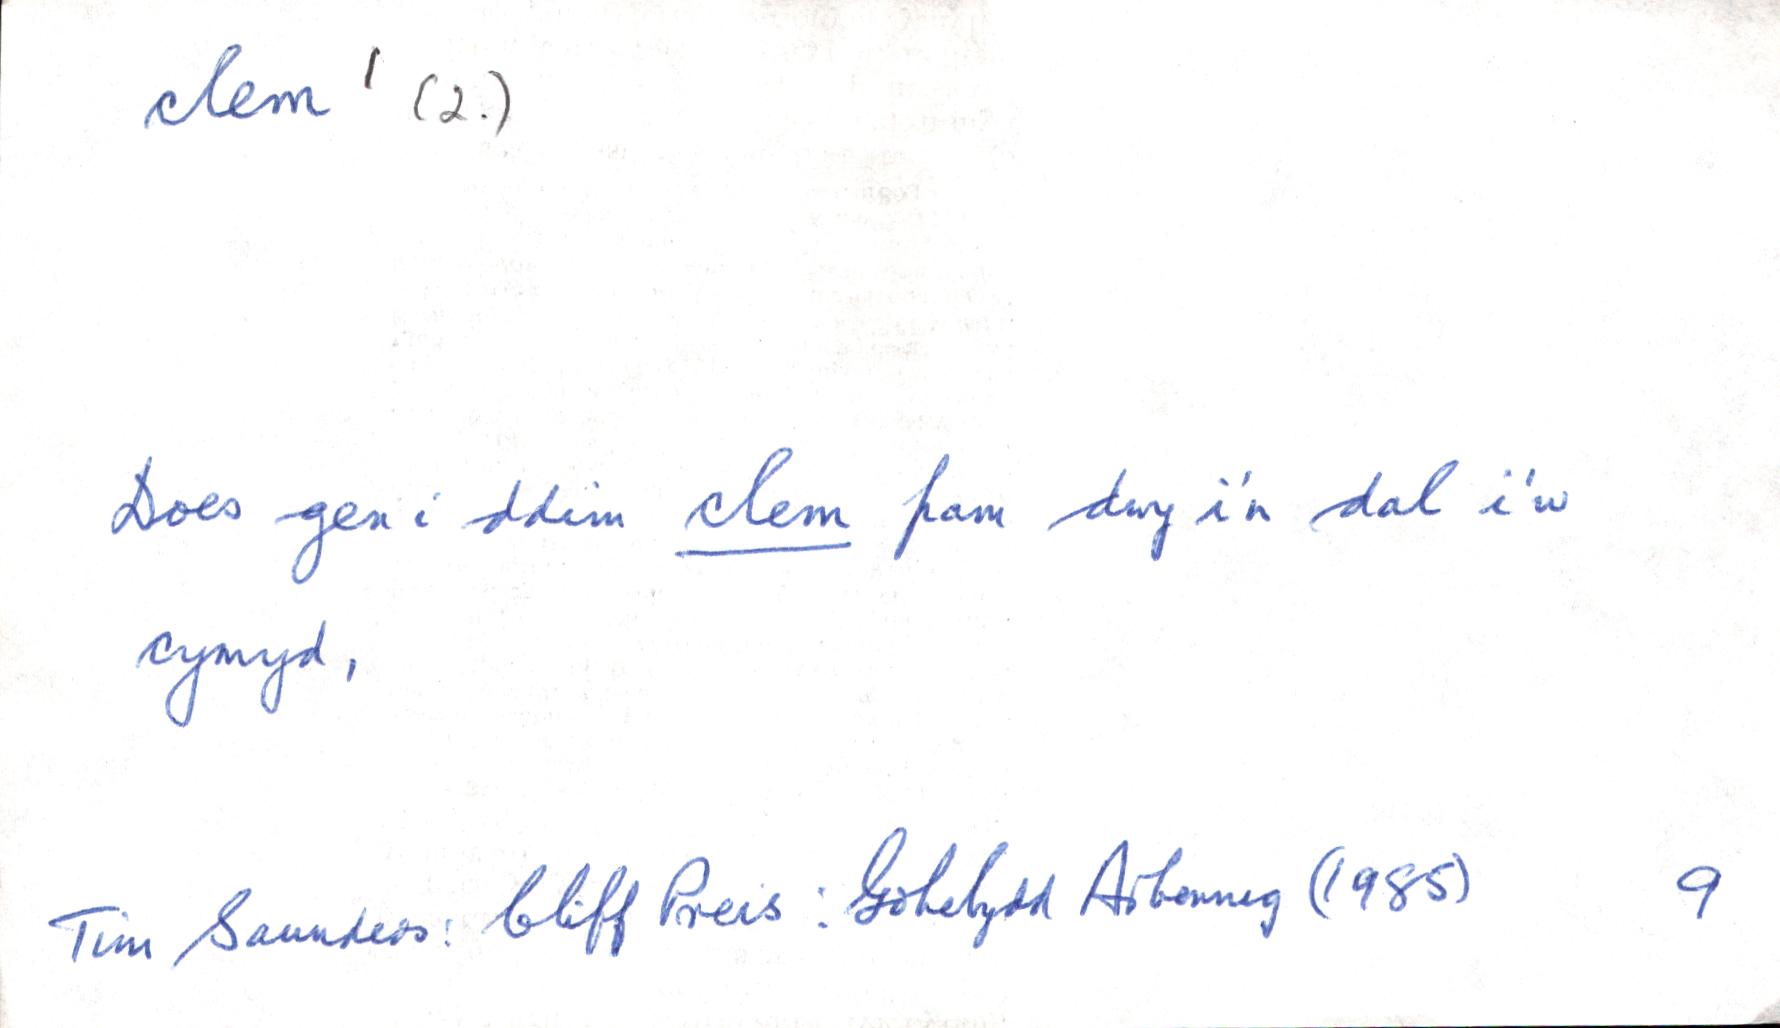 clem¹ (2.)
Does gen i ddim clem pam dwy i'n dal i'w
cymyd,
Tim Saunders: Cliff Preis: Gohebydd Arbennig (1985) 9